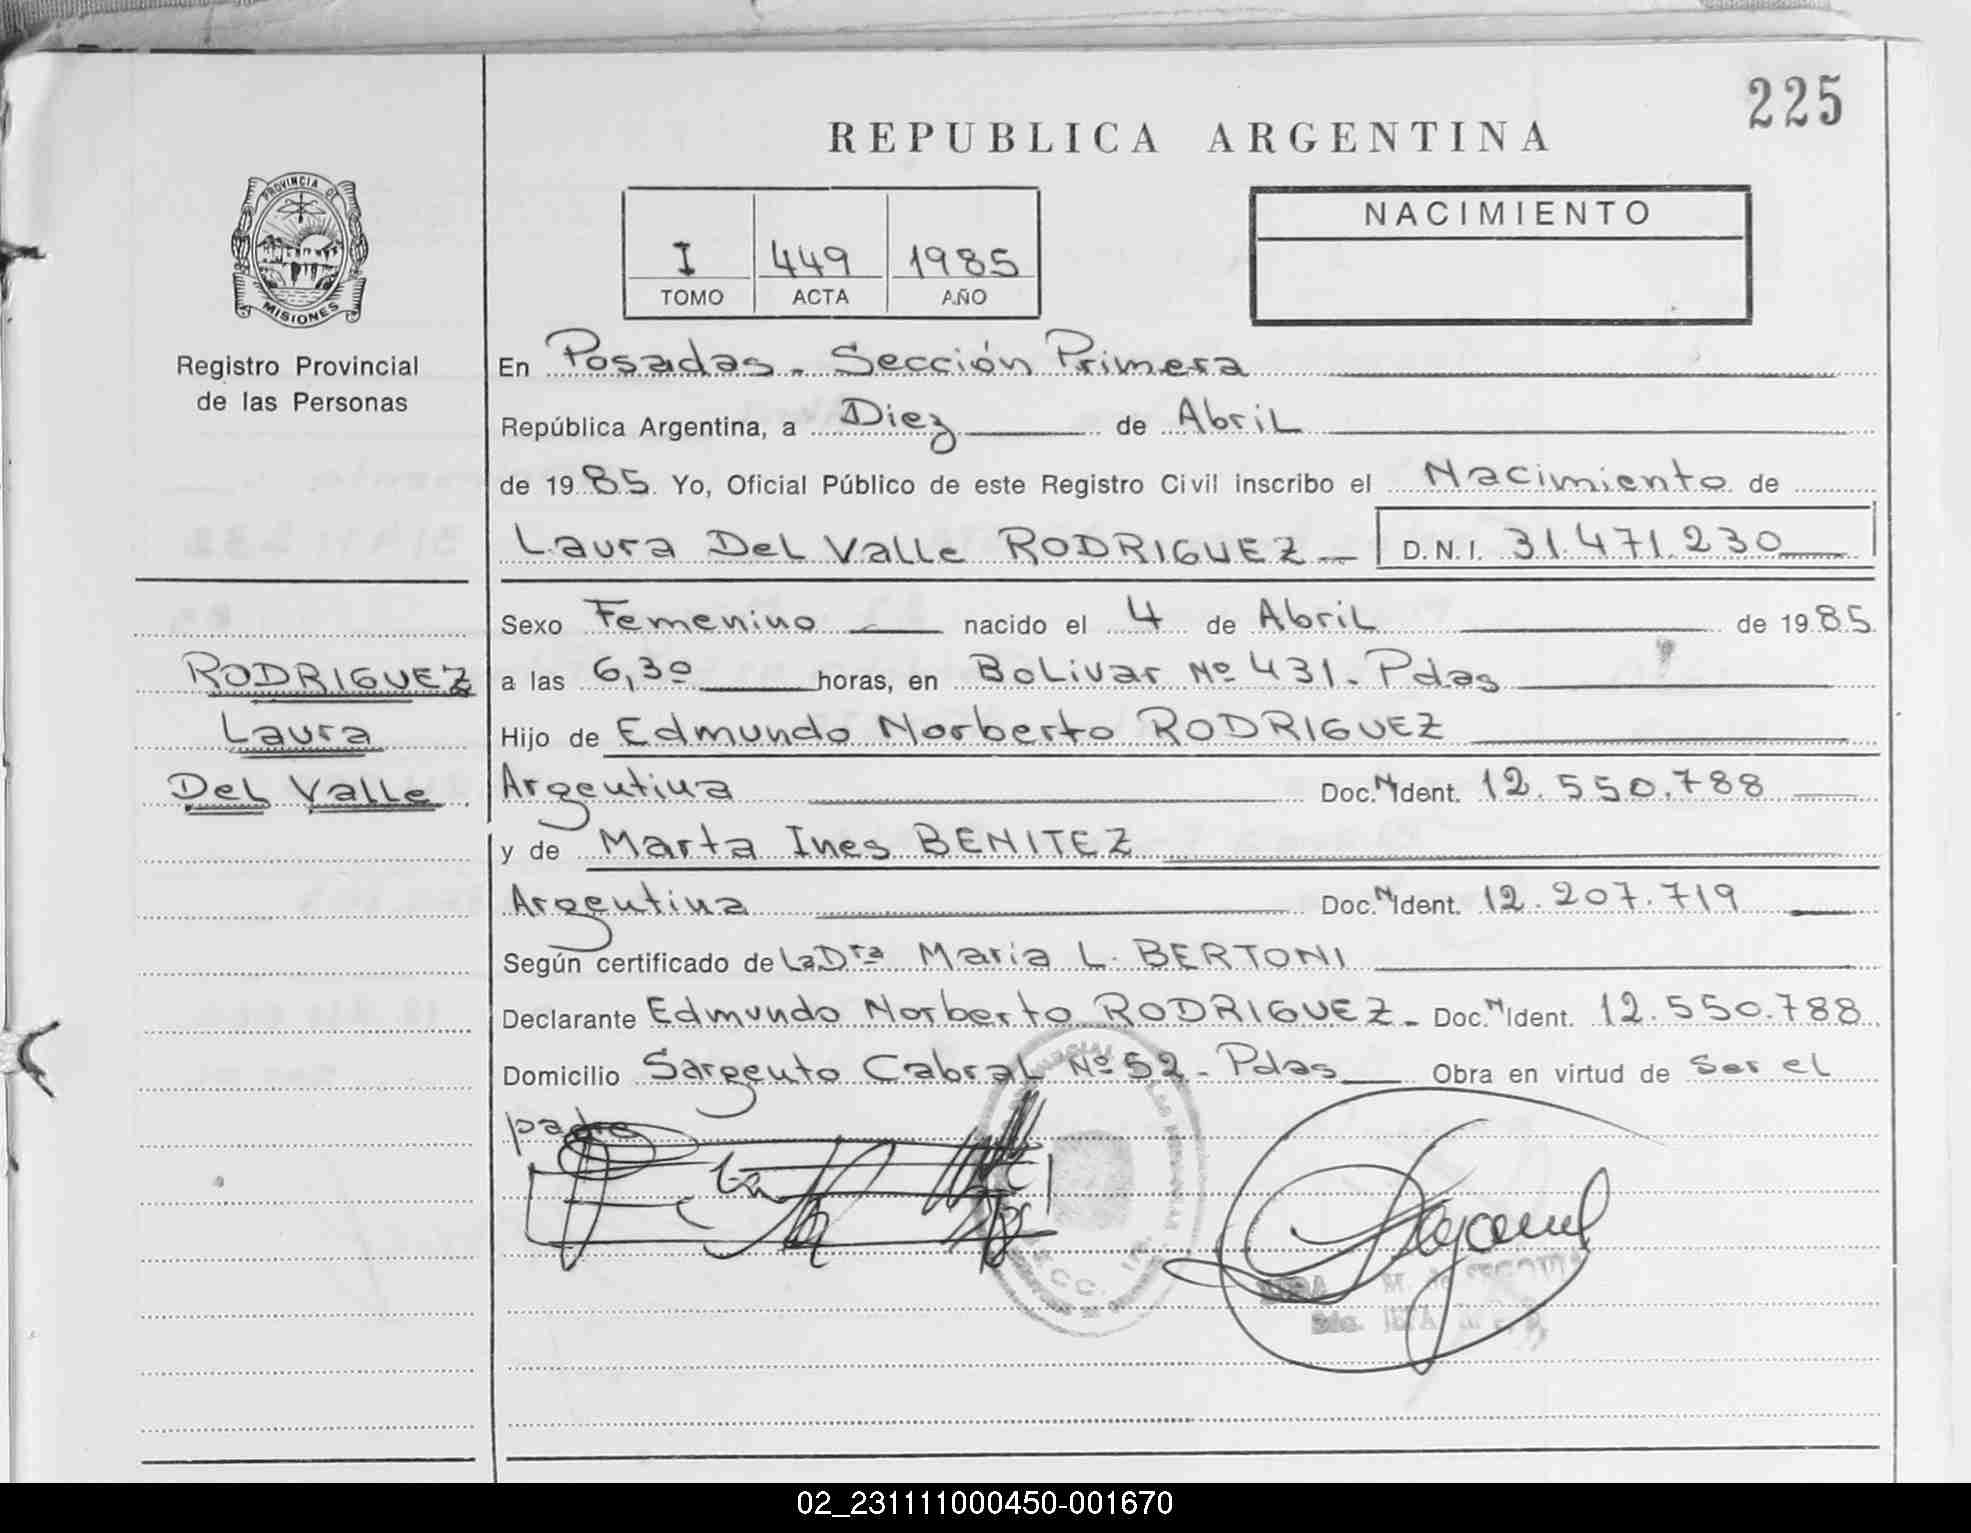 225
REPUBLICA ARGENTINA
PROVINCIA DE
MISIONES
Registro Provincial
de las Personas
I 449 1985
TOMO ACTA AÑO
NACIMIENTO
En Posadas. Sección Primera
República Argentina, a Diez de Abril
de 1985. Yo, Oficial Público de este Registro Civil inscribo el Nacimiento de
Laura Del Valle RODRIGUEZ D.N.I. 31.471.230
Sexo Femenino nacido el 4 de Abril de 1985
RODRIGUEZ
Laura
Del Valle
a las 6,30 horas, en Bolivar Nº 431. Pdas
Hijo de Edmundo Norberto RODRIGUEZ
Argentina Doc. N Ident. 12.550.788
y de Marta Ines BENITEZ
Argentina Doc. N Ident. 12.207.719
Según certificado de La Dra Maria L. BERTONI
Declarante Edmundo Norberto RODRIGUEZ - Doc. N Ident. 12.550.788
Domicilio Sargento Cabral Nº 52 - Pdas Obra en virtud de ser el
padre
M. de SEGOVIA
02_231111000450-001670